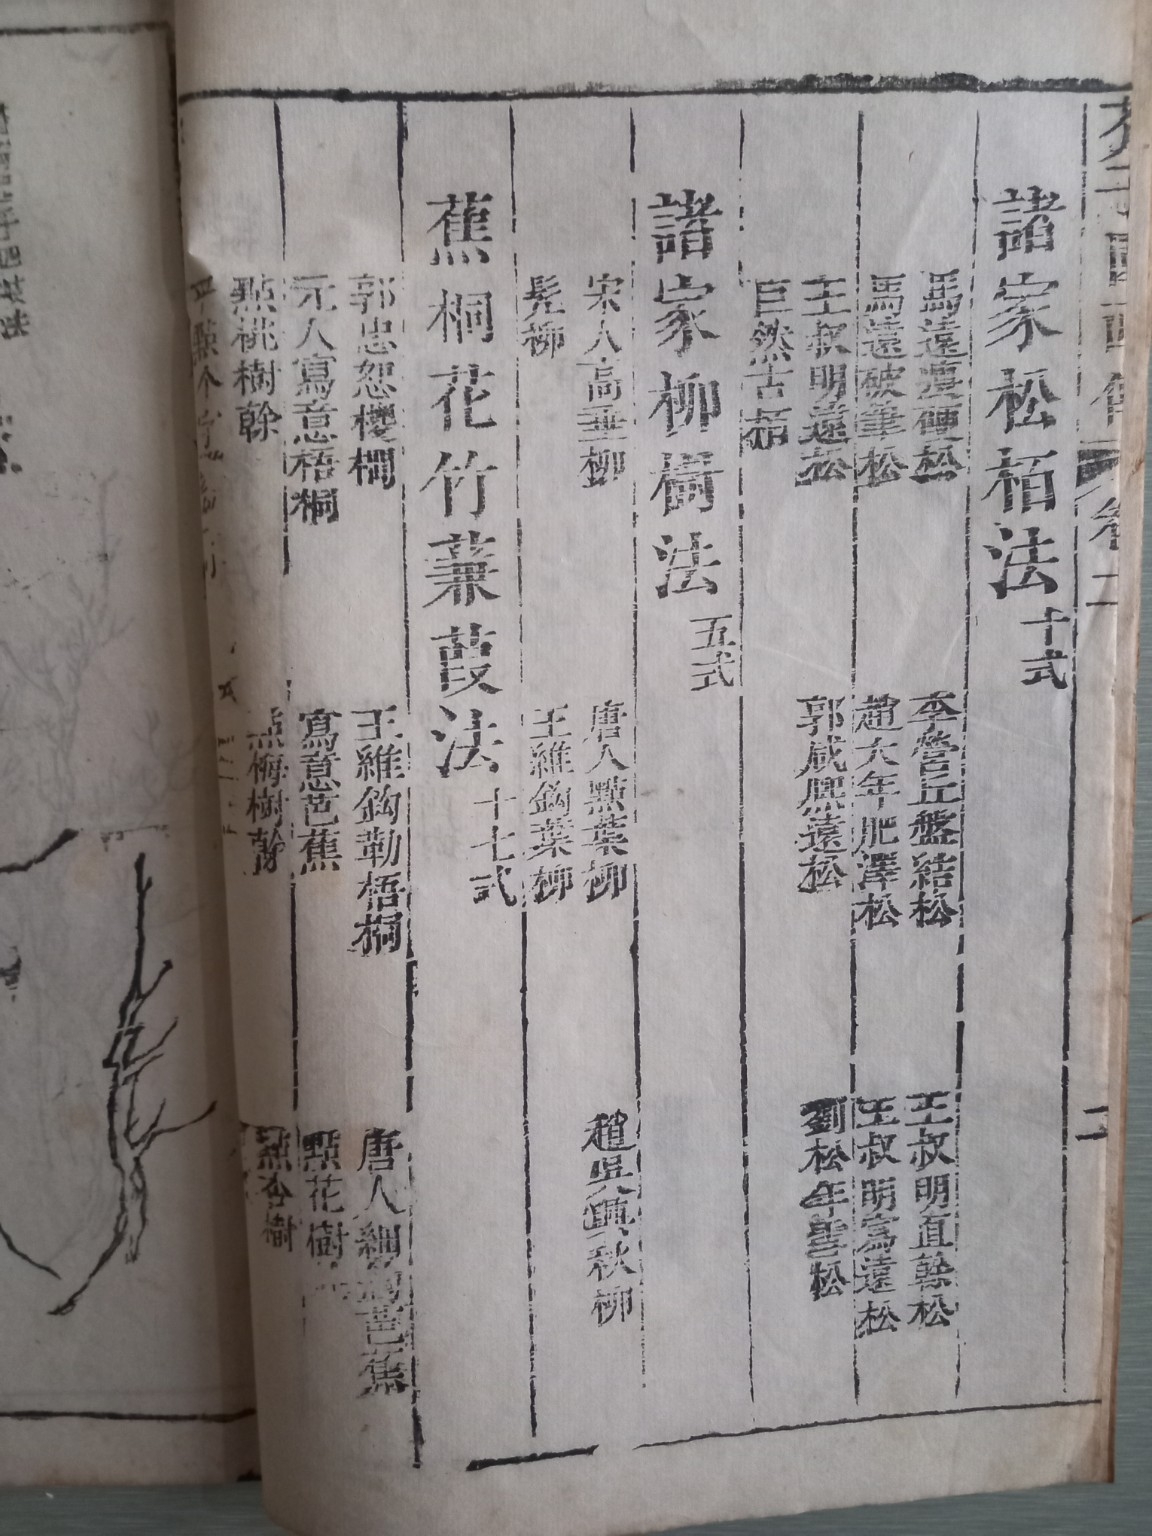 子園畫傳 卷二 二
諸家松栢法 十式
馬遠瘦硬松 李營丘盤結松 王叔明直榦松
馬遠破筆松 趙大年肥澤松 王叔明寫遠松
王叔明遠松 郭咸熙遠松 劉松年雪松
巨然古栢
諸家柳樹法 五式
宋人高垂柳 唐人點葉柳 趙吳興秋柳
髡柳 王維鈎葉柳
蕉桐花竹蒹葭法 十七式
郭忠恕椶櫚 王維鈎勒梧桐 唐人細鈎芭蕉
元人寫意梧桐 寫意芭蕉 點花樹
點桃樹榦 點梅樹榦 點杏樹